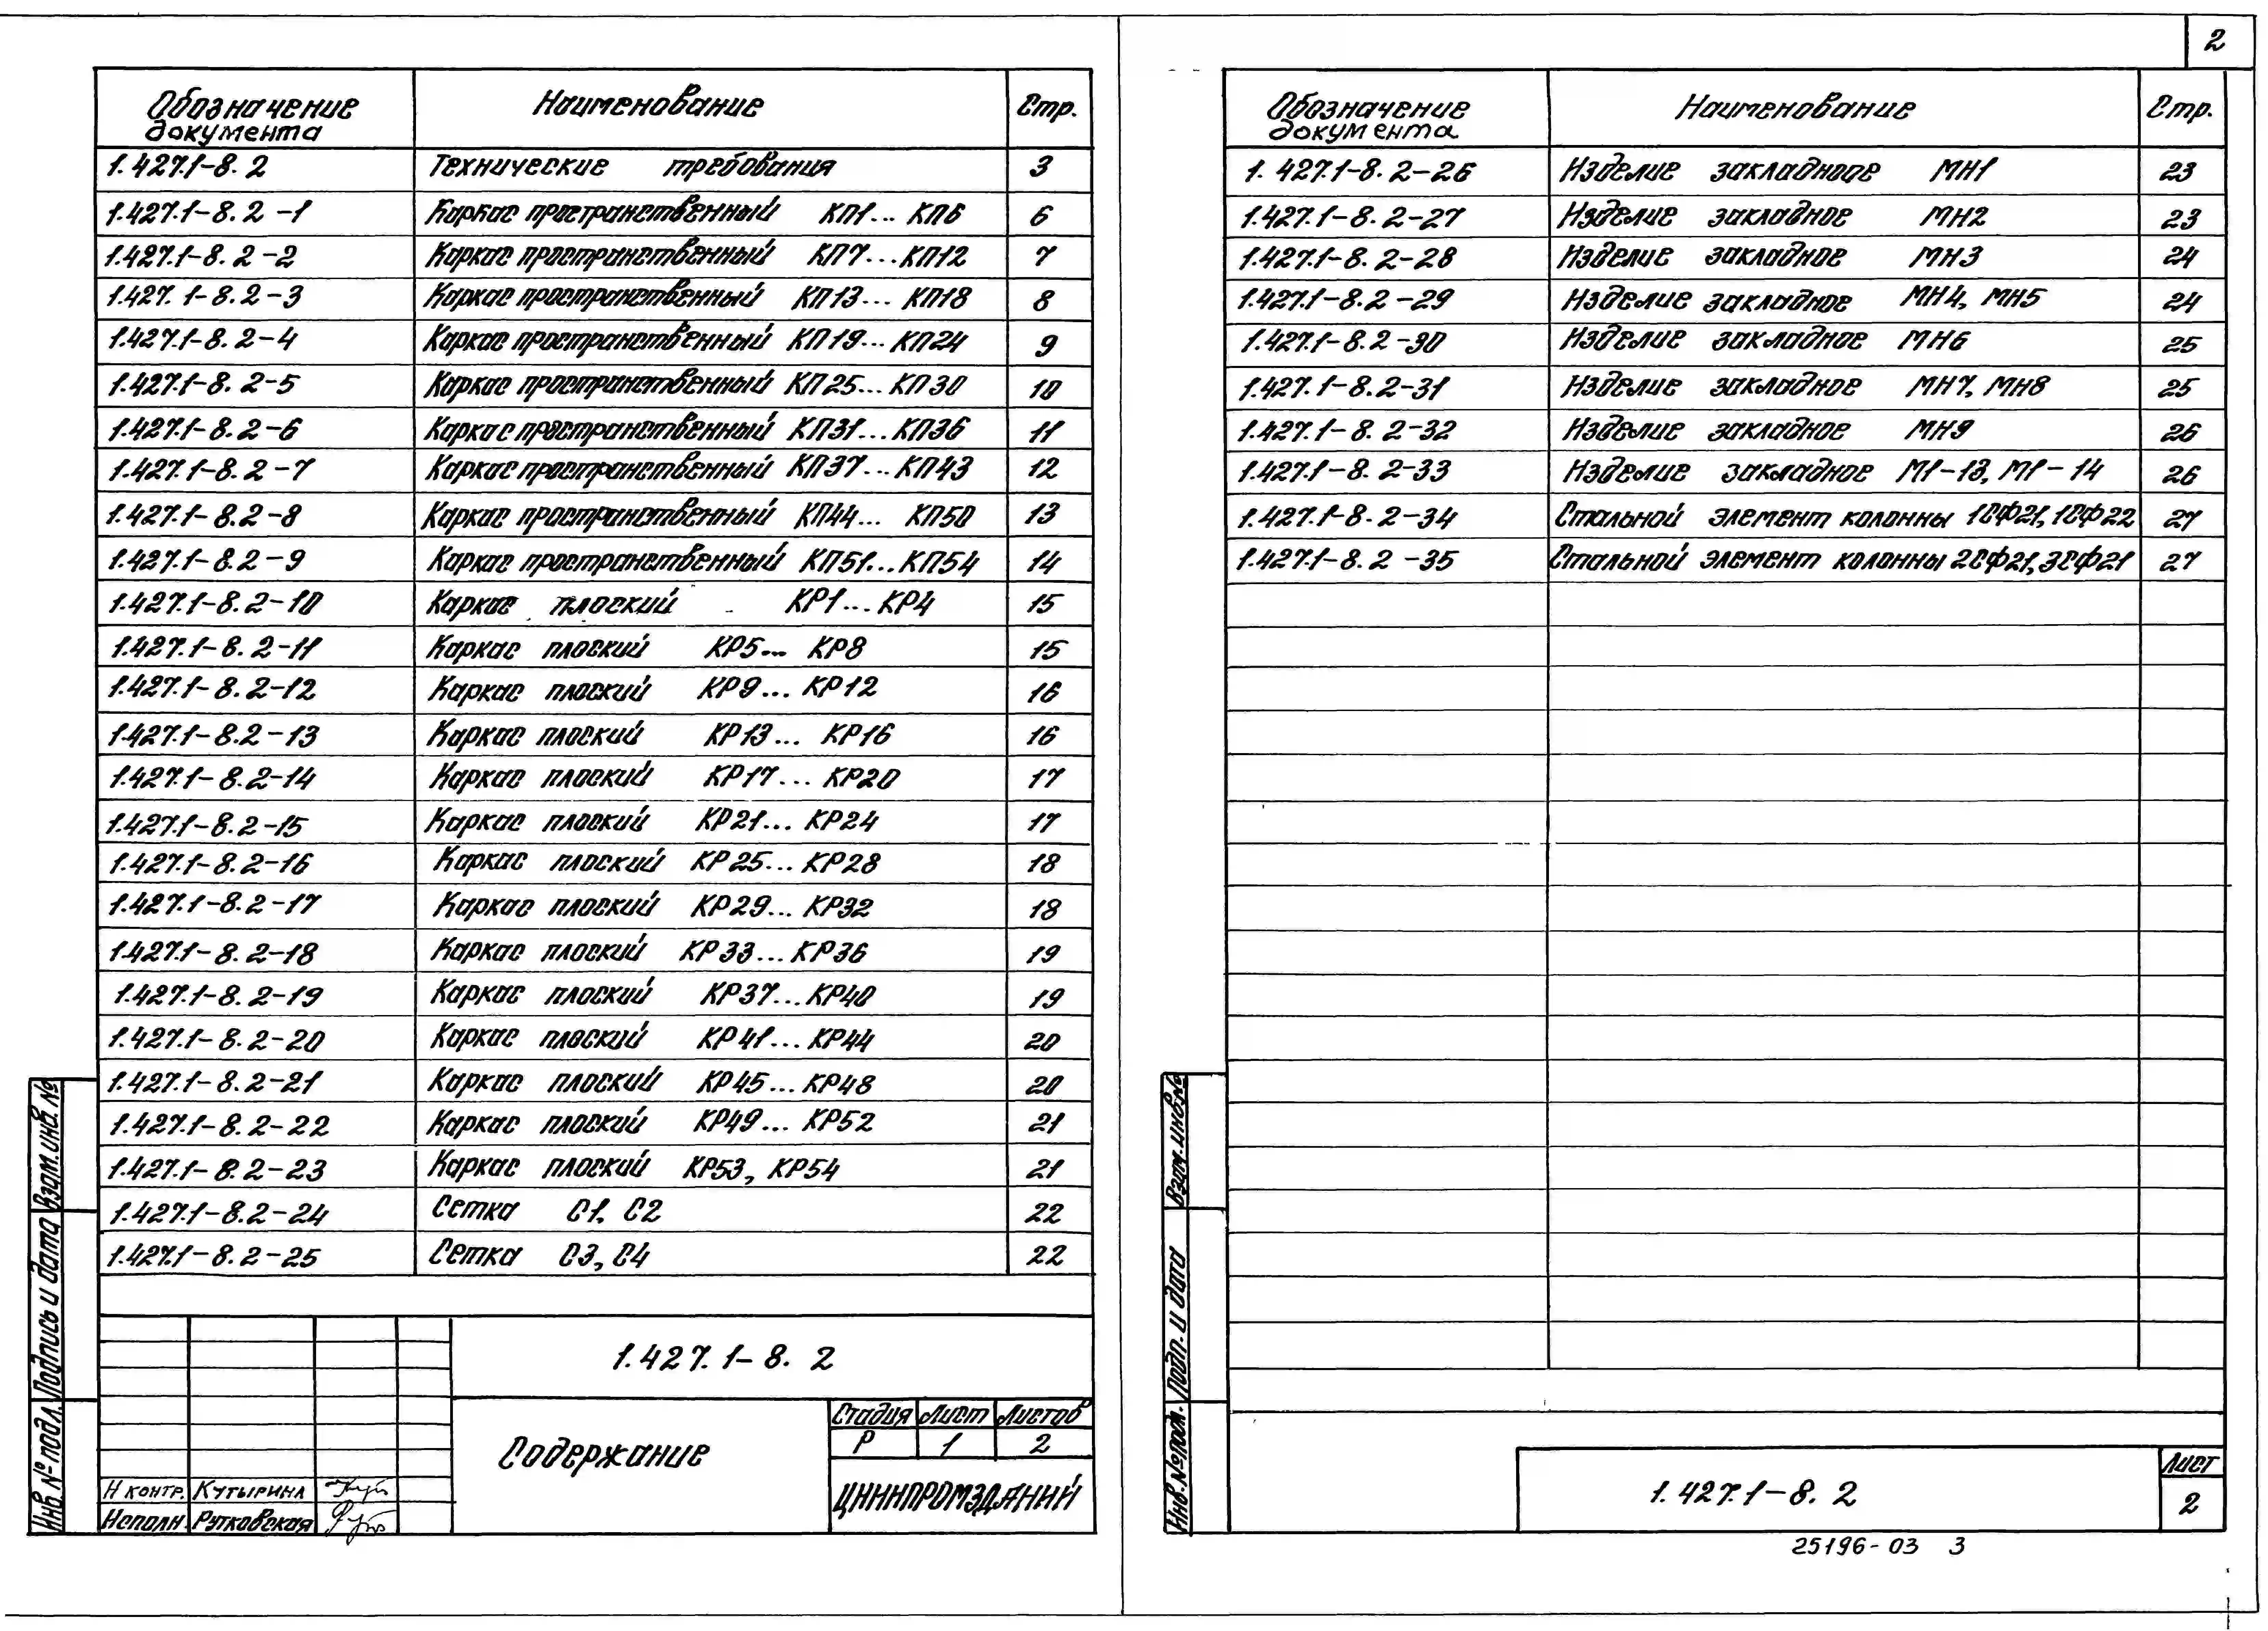 Обозначение документа Наименование Стр.
1.427.1-8.2 Технические требования 3
1.427.1-8.2-1 Каркас пространственный КП1... КП6 6
1.427.1-8.2-2 Каркас пространственный КП7...КП12 7
1.427.1-8.2-3 Каркас пространственный КП13... КП18 8
1.427.1-8.2-4 Каркас пространственный КП19...КП24 9
1.427.1-8.2-5 Каркас пространственный КП25...КП30 10
1.427.1-8.2-6 Каркас пространственный КП31...КП36 11
1.427.1-8.2-7 Каркас пространственный КП37...КП43 12
1.427.1-8.2-8 Каркас пространственный КП44... КП50 13
1.427.1-8.2-9 Каркас пространственный КП51...КП54 14
1.427.1-8.2-10 Каркас плоский КР1...КР4 15
1.427.1-8.2-11 Каркас плоский КР5... КР8 15
1.427.1-8.2-12 Каркас плоский КР9...КР12 16
1.427.1-8.2-13 Каркас плоский КР13... КР16 16
1.427.1-8.2-14 Каркас плоский КР17... КР20 17
1.427.1-8.2-15 Каркас плоский КР21... КР24 17
1.427.1-8.2-16 Каркас плоский КР25...КР28 18
1.427.1-8.2-17 Каркас плоский КР29... КР32 18
1.427.1-8.2-18 Каркас плоский КР33...КР36 19
1.427.1-8.2-19 Каркас плоский КР37...КР40 19
1.427.1-8.2-20 Каркас плоский КР41...КР44 20
1.427.1-8.2-21 Каркас плоский КР45...КР48 20
1.427.1-8.2-22 Каркас плоский КР49... КР52 21
1.427.1-8.2-23 Каркас плоский КР53, КР54 21
1.427.1-8.2-24 Сетка С1, С2 22
1.427.1-8.2-25 Сетка С3, С4 22
1.427.1-8.2
Содержание
Стадия Лист Листов
Р 1 2
ЦНИИПРОМЗДАНИЙ
Н контр. Кутырина
Исполн. Рутковская
Взам.инв.№
Подпись и дата
Инв.№подл.
2
Обозначение документа Наименование Стр.
1.427.1-8.2-26 Изделие закладное МН1 23
1.427.1-8.2-27 Изделие закладное МН2 23
1.427.1-8.2-28 Изделие закладное МН3 24
1.427.1-8.2-29 Изделие закладное МН4, МН5 24
1.427.1-8.2-30 Изделие закладное МН6 25
1.427.1-8.2-31 Изделие закладное МН7, МН8 25
1.427.1-8.2-32 Изделие закладное МН9 26
1.427.1-8.2-33 Изделие закладное М1-13, М1-14 26
1.427.1-8.2-34 Стальной элемент колонны 1СФ21, 1СФ22 27
1.427.1-8.2-35 Стальной элемент колонны 2СФ21, 3СФ21 27
Взам.инв№
Подп. и дата
Инв.№подл.
1.427.1-8.2
Лист
2
25196-03 3